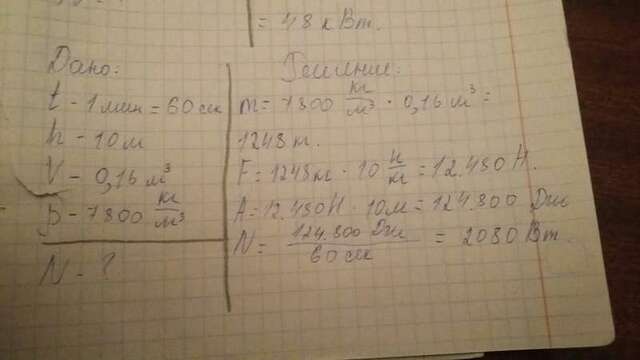 = 48 кВт.
Дано:
t - 1 мин = 60 сек
h - 10 м
V - 0,16 м³
р - 7800 кг/м³
N - ?
Решение:
m = 7800 кг/м³ · 0,16 м³ =
1248 кг.
F = 1248 кг · 10 Н/кг = 12.480 Н.
A = 12.480 Н · 10 м = 124.800 Дж
N = 124.800 Дж / 60 сек = 2080 Вт